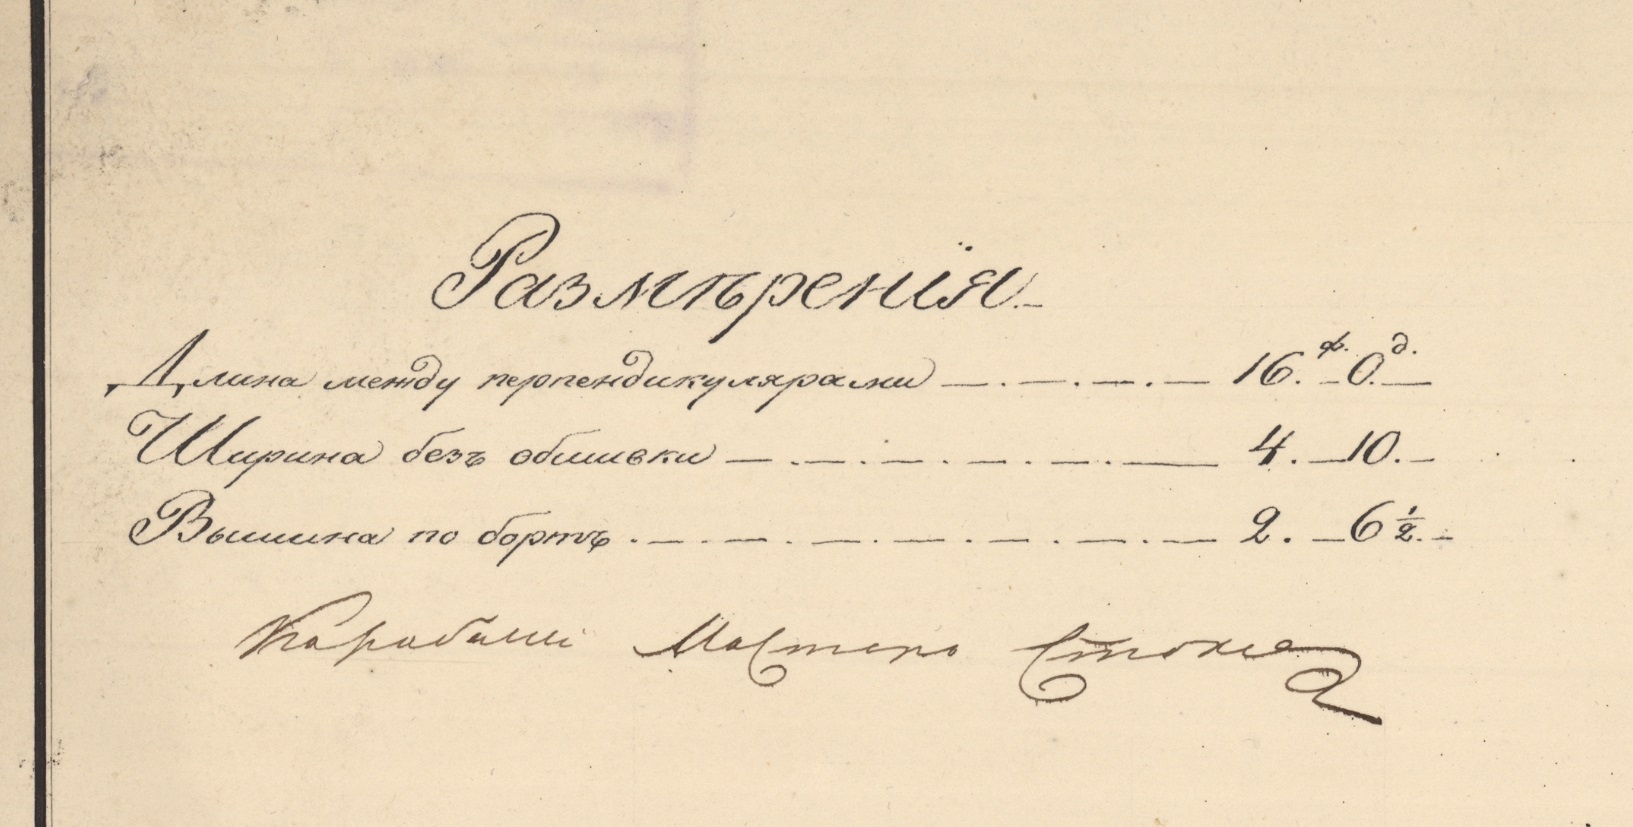 Размѣренія.
Длина между перпендикулярами — . — . — . — 16.ф. 0.д.
Ширина безъ обшивки — . — . — . — . — . — 4. 10.
Вышина по бортъ . — . — . — . — . — . — . — 2. 6 1/2.
Мастеръ